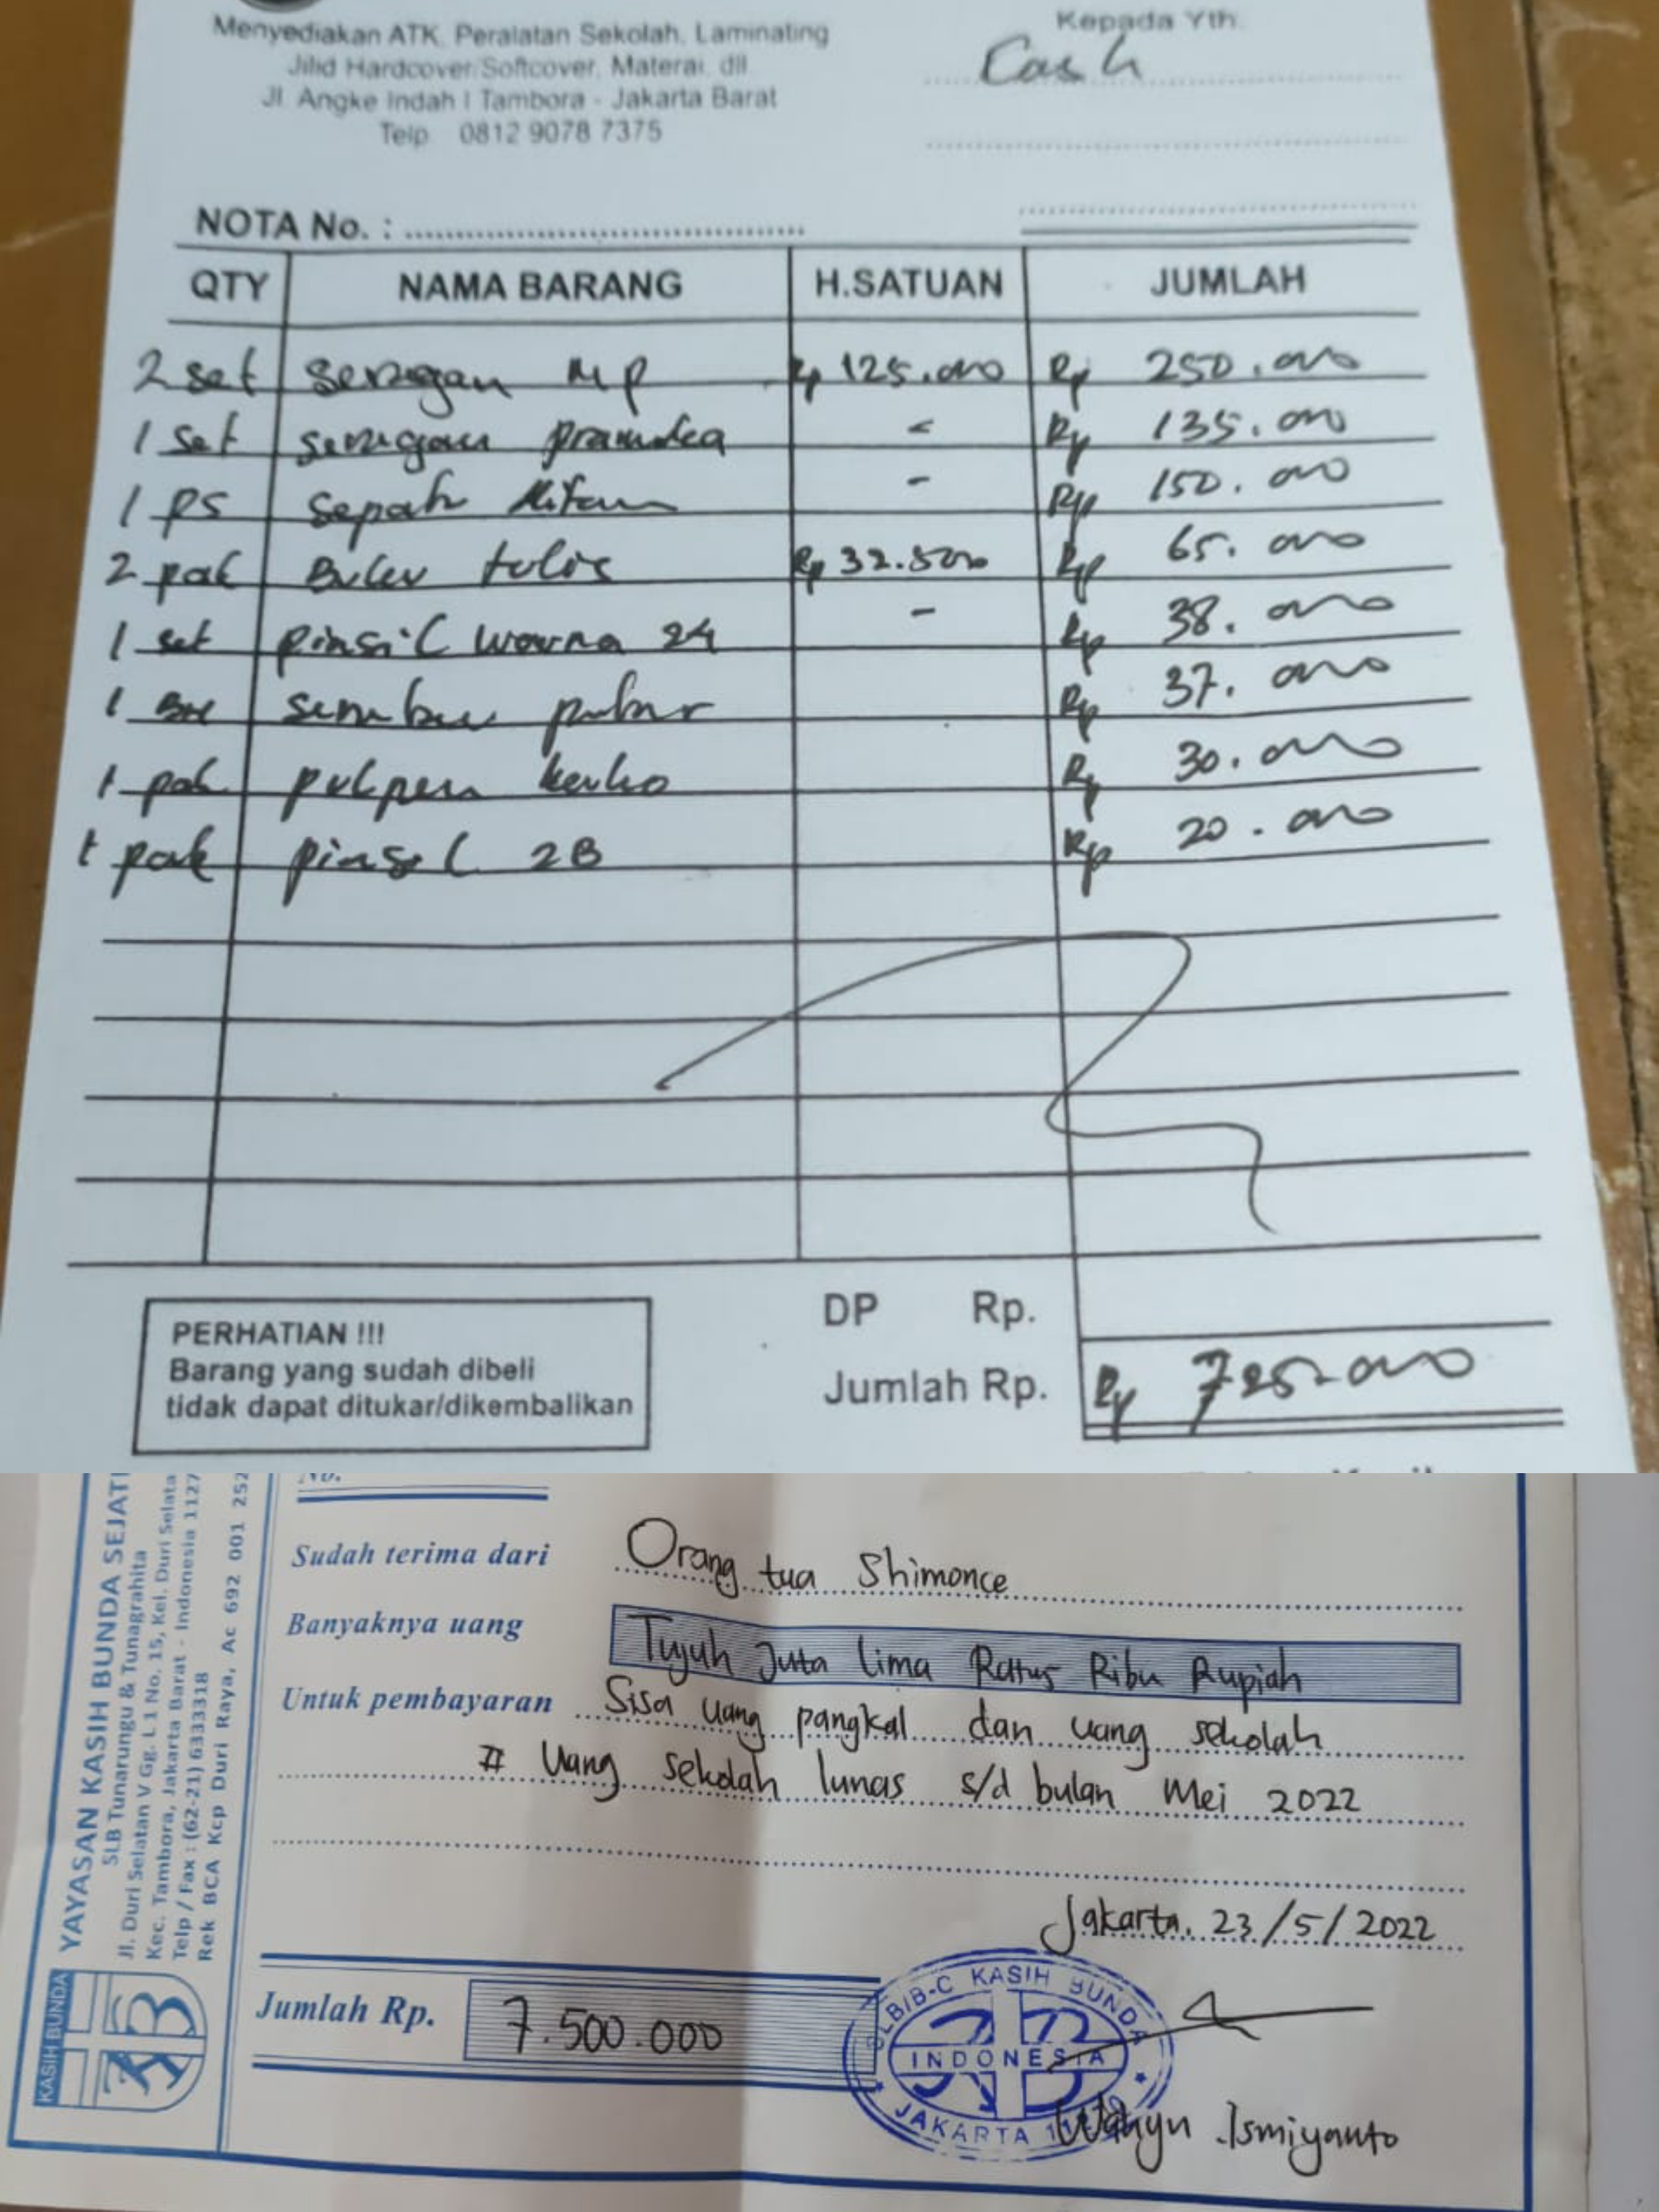 Menyediakan ATK, Peralatan Sekolah, Laminating
Jilid Hardcover/Softcover, Materai, dll
Jl. Angke Indah I Tambora - Jakarta Barat
Telp. 0812 9078 7375
Kepada Yth.
Cash
NOTA No. :
QTY NAMA BARANG H.SATUAN JUMLAH
2 set seragam MP Rp 125.000 Rp 250.000
1 set seragam pramuka - Rp 135.000
1 ps sepatu hitam - Rp 150.000
2 pak Buku tulis Rp 32.500 Rp 65.000
1 set pinsil warna 24 - Rp 38.000
1 Rp 37.000
1 pak pulpen kenko Rp 30.000
1 pak pinsil 2B Rp 20.000
DP Rp.
Jumlah Rp. Rp 725.000
PERHATIAN !!!
Barang yang sudah dibeli
tidak dapat ditukar/dikembalikan
YAYASAN KASIH BUNDA SEJATI
SLB Tunarungu & Tunagrahita
Jl. Duri Selatan V Gg. L 1 No. 15, Kel. Duri Selata
Kec. Tambora, Jakarta Barat - Indonesia 1127
Telp / Fax : (62-21) 6333318
Rek BCA Kcp Duri Raya, Ac 692 001 252
KASIH BUNDA
No.
Sudah terima dari Orang tua Shimonce
Banyaknya uang Tujuh Juta Lima Ratus Ribu Rupiah
Untuk pembayaran Sisa uang pangkal dan uang sekolah
# Uang sekolah lunas s/d bulan Mei 2022
Jakarta, 23/5/2022
Jumlah Rp. 7.500.000
SLB/B-C KASIH BUNDA
INDONESIA
JAKARTA
Wahyu Ismiyanto